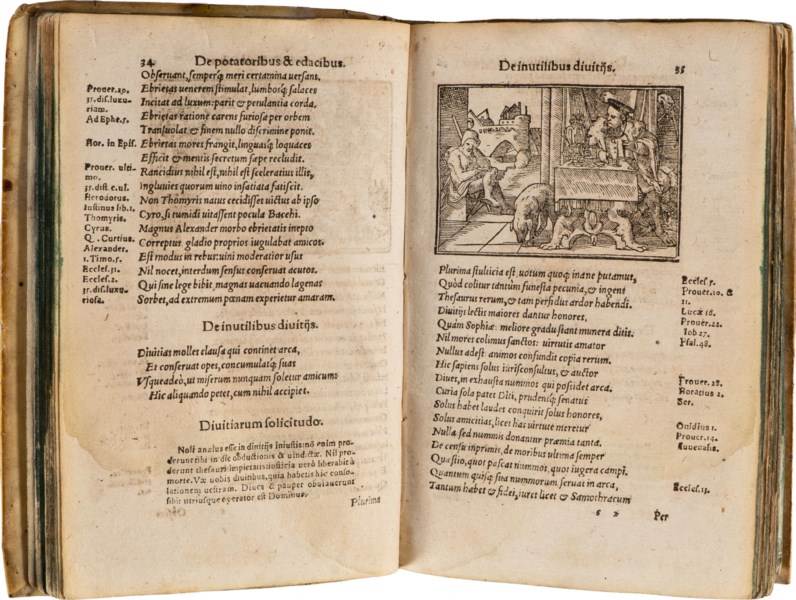 34 De potatoribus & edacibus.
Obseruant, semperq́; meri certamina uersant.
Prouer. 29. Ebrietas uenerem stimulat, lumbosq́; salaces
31. dis. luxu Incitat ad luxum: parit & petulantia corda.
riam.
Ad Ephe. 5. Ebrietas ratione carens furiosa per orbem
Transuolat & finem nullo discrimine ponit.
Hor. in Epist. Ebrietas mores frangit, linguasq́; loquaces
Efficit & mentis secretum sæpe recludit.
Prouer. ulti- Rancidius nihil est, nihil est sceleratius illis,
mo.
Ingluuies quorum uino insatiata fatiscit.
Herodorus. Non Thomyris natus cecidisset uictus ab ipso
Iustinus lib. 1. Cyro, si tumidi uitassent pocula Bacchi.
Thomyris.
Cyrus. Magnus Alexander morbo ebrietatis inepto
Q. Curtius. Correptus gladio proprios iugulabat amicos.
Alexander.
1. Timo. 5. Est modus in rebus: uini moderatior usus
Eccles. 31. Nil nocet, interdum sensus conseruat acutos.
Eccles. 2. Qui sine lege bibit, magnas uacuando lagenas
31. dis. luxu.
riosa. Sorbet, ad extremum pœnam experietur amaram.
De inutilibus diuitijs.
Diuitias molles clausa qui continet arca,
Et conseruat opes, concumulatq́; suas
Vsqueadeò, ut miserum nunquam soletur amicum:
Hic aliquando petet, cum nihil accipiet.
Diuitiarum solicitudo.
Noli anxius esse in diuitijs iniustis: nō enim pro-
derunt tibi in die obductionis & uindictæ. Nil pro-
derunt thesauri impietatis: iustitia uerò liberabit à
morte. Væ uobis diuitibus, quia habetis hic conso-
lationem uestram. Diues & pauper obuiauerunt
sibi: utriusque operator est Dominus.
Plurima
De inutilibus diuitijs. 35
Plurima stultitia est, uotum quoq́; inane putamus,
Quòd colitur tantùm funesta pecunia, & ingens Eccles. 5.
Thesaurus rerum, & tam perfidus ardor habendi. Prouer. 10. &
11.
Diuitijs lectis maiores dantur honores, Lucæ 16.
Quàm Sophiæ: meliore gradu stant munera ditis. Prouer. 22.
Iob 27.
Nil mores colimus sanctos: uirtutis amator Psal. 48.
Nullus adest: animos confundit copia rerum.
Hic sapiens solus iurisconsultus, & auctor
Diues, inexhausta nummos qui possidet arca. Prouer. 28.
Curia sola patet Diti, prudensq́; senatus Horatius 2.
Ser.
Solus habet laudes conquirit solus honores,
Solus amicitias, licet has uirtute meretur Ouidius 1.
Nulla: sed nummis donantur præmia tanta. Prouer. 14.
De censu inprimis, de moribus ultima semper Iuuenalis.
Quæstio, quot pascat nummos, quot iugera campi.
Quantum quisq́; sua nummorum seruat in arca,
Tantum habet & fidei, iuret licet & Samothracum Eccles. 13.
Per